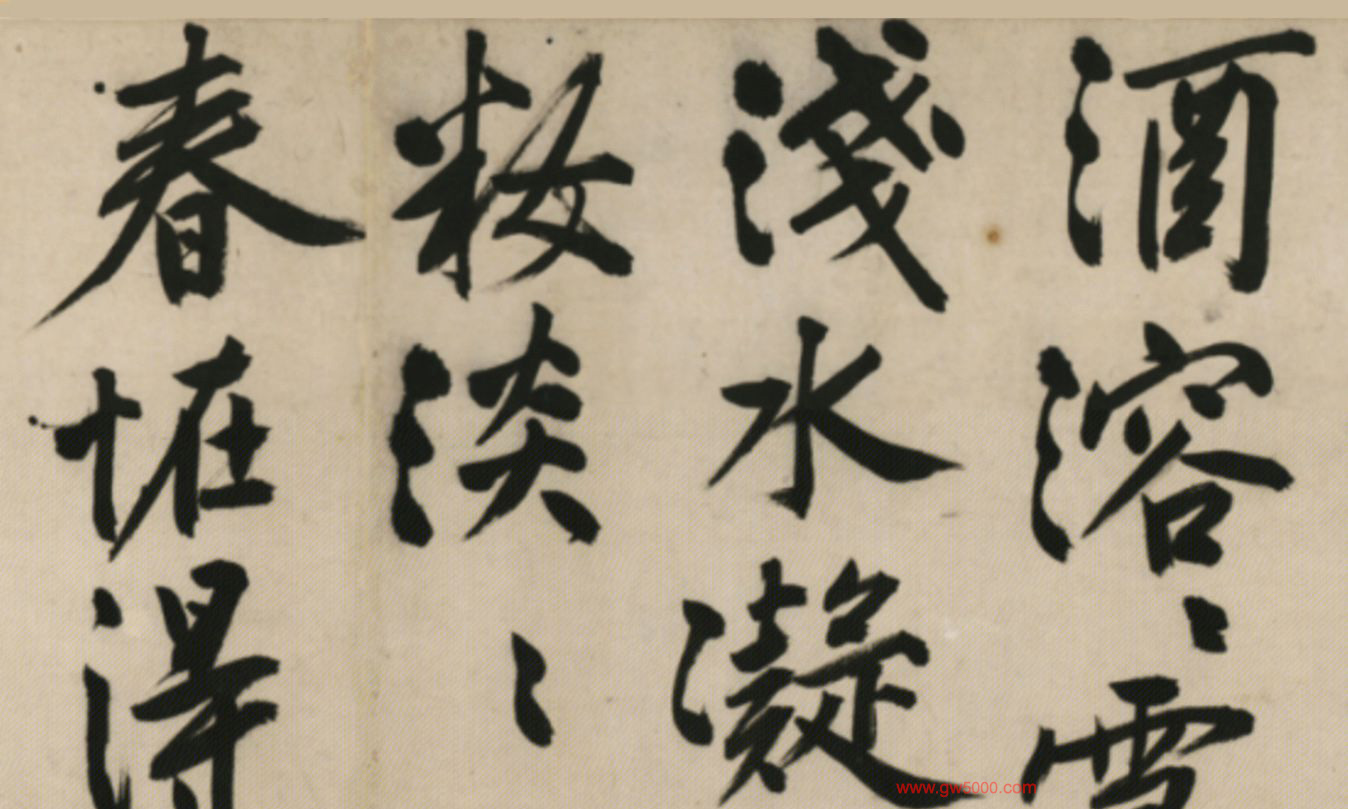 酒溶〻雪
淺水凝
粧淡〻
春堆得
www.gw5000.com